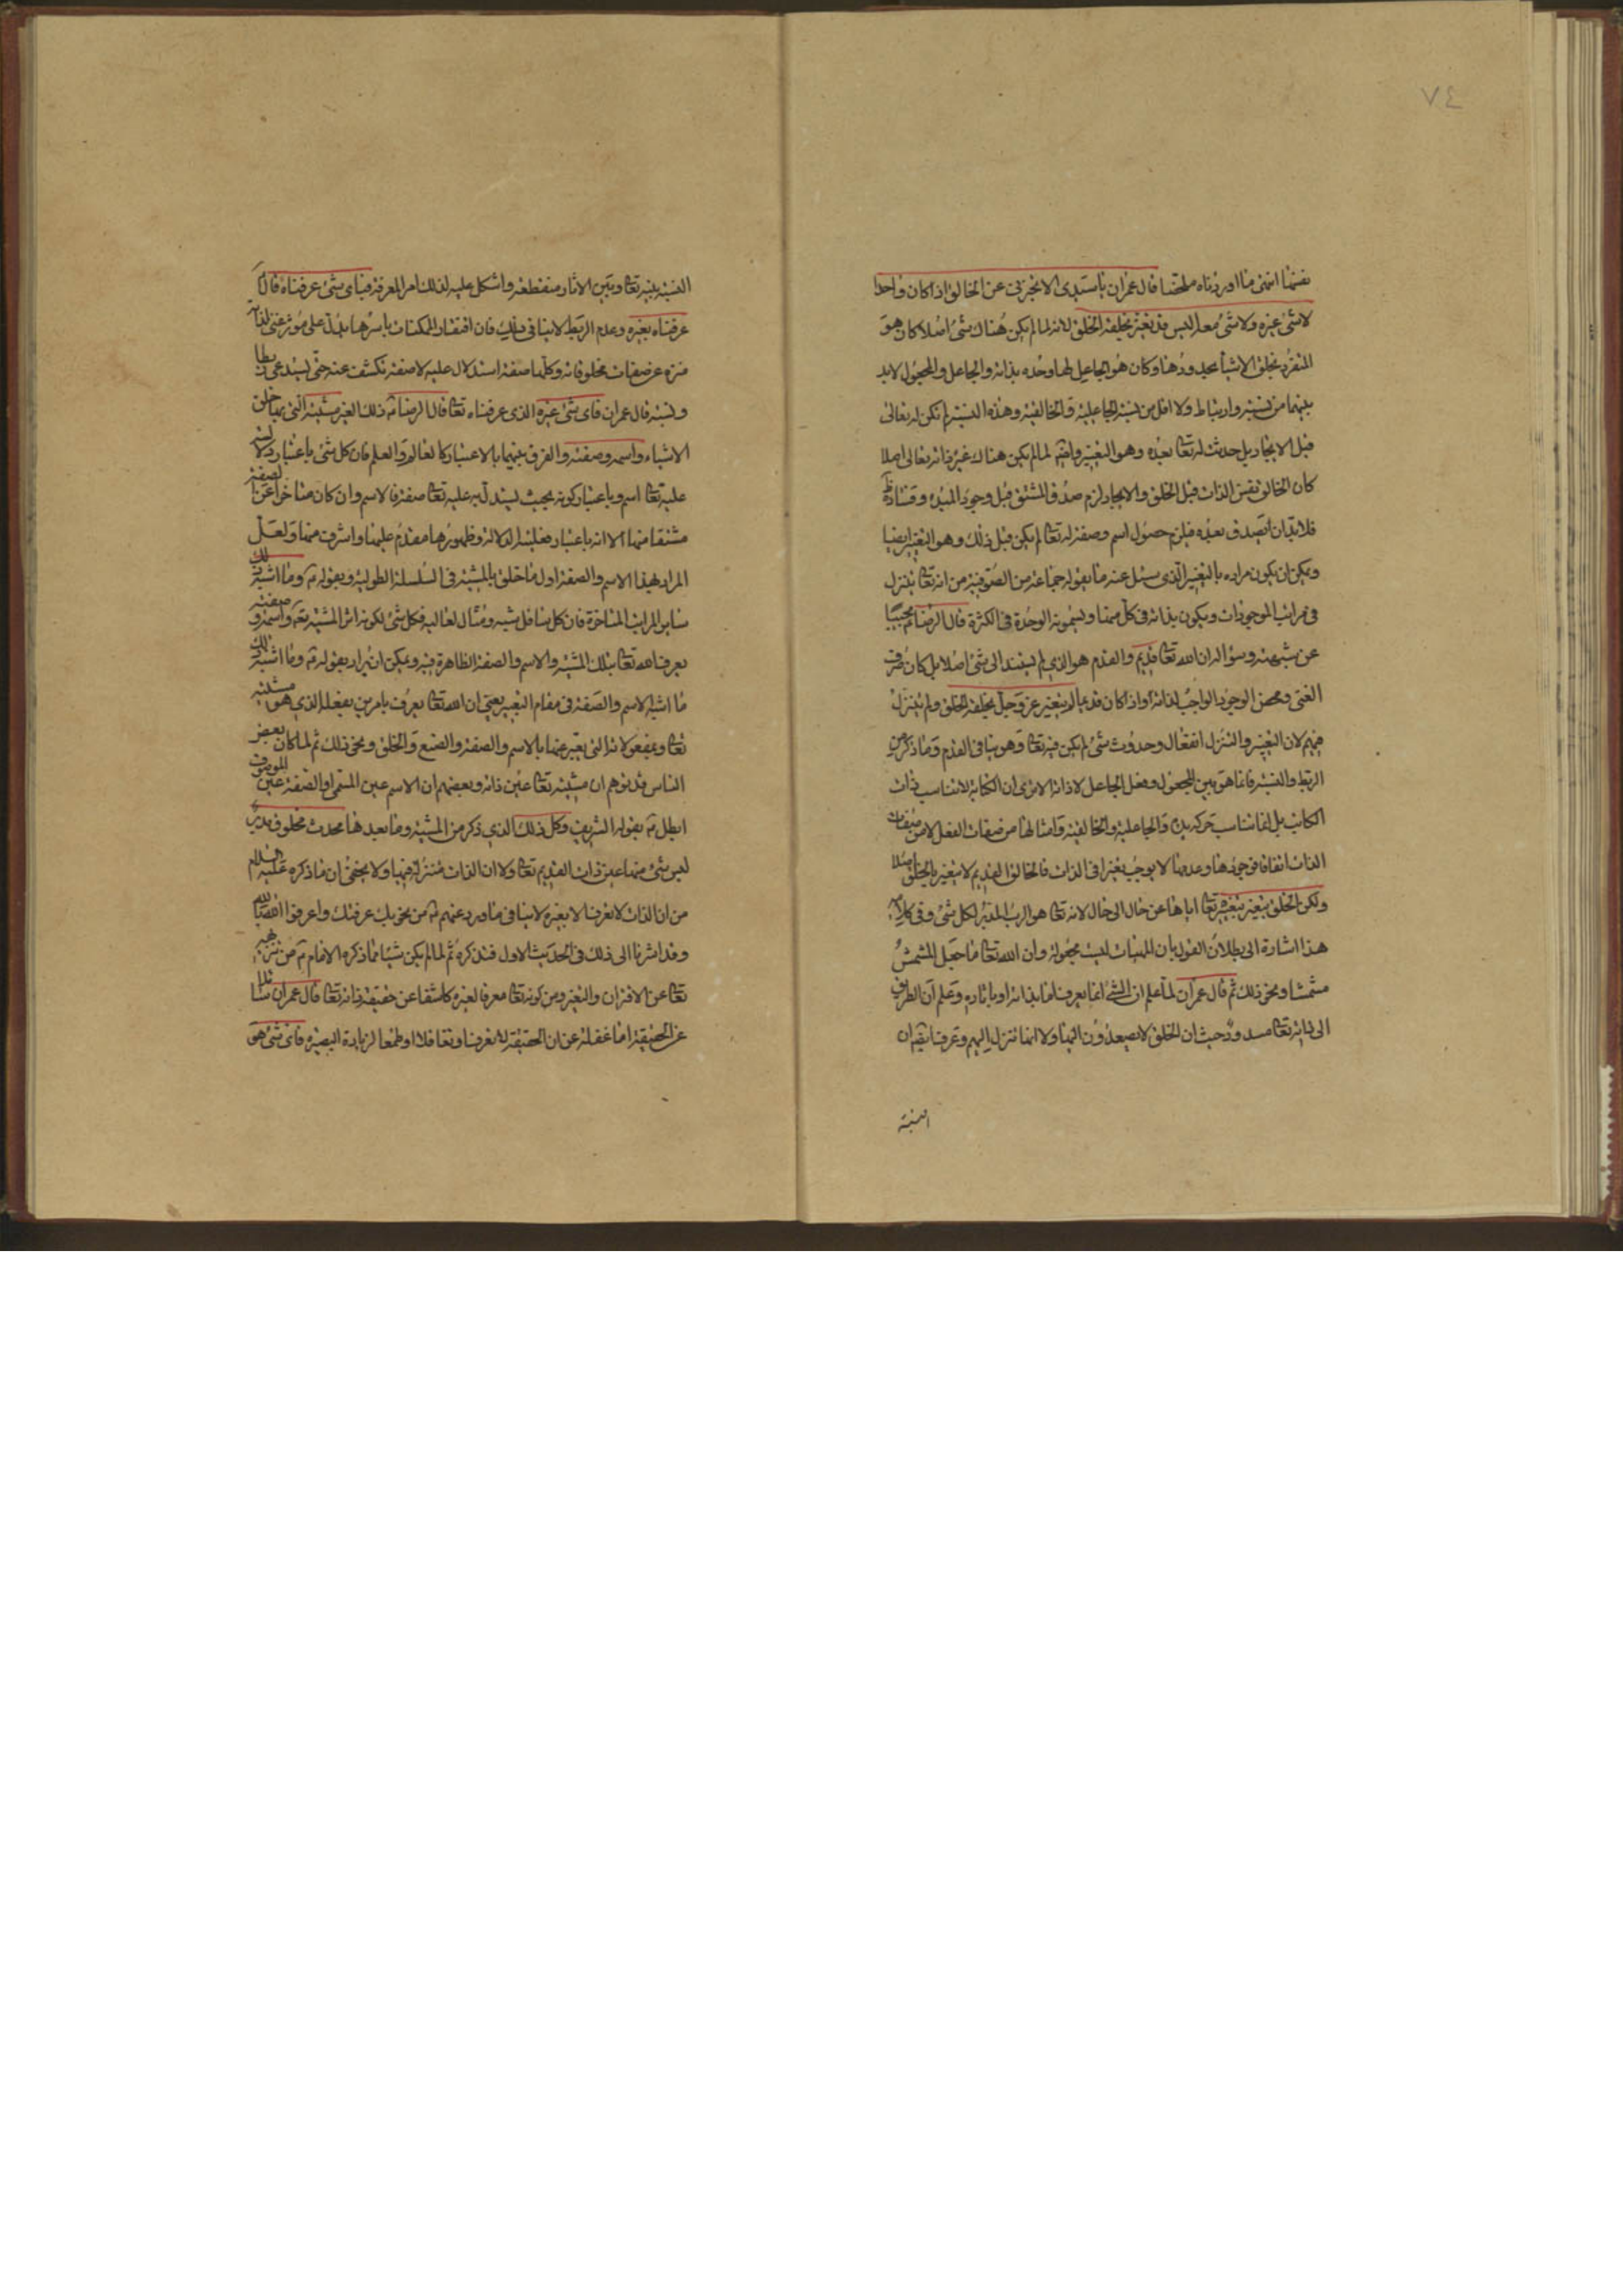 ٧٤
نفسها انتهى ما اوردناه ملخصا قال عمران يا سيدى الا تخبرنى عن الخالق اذا كان واحدا
لا شئ غيره ولا شئ معه اليس قد تغير بخلقه الخلق لانه لما لم يكن هناك شئ اصلا كان هو
المتفرد بخلق الاشياء بحدودها وكان هو الجاعل لها وحده بذاته والجاعل والمجعول لابد
بينهما من نسبة وارتباط ولا اقل من نسبة الجاعلية والخالقية وهذه النسبة لم تكن له تعالى
قبل الايجاد بل حدثت له تعا بعده وهو التغير وايضا لما لم يكن هناك غير ذاته تعالى اصلا
كان الخالق نفس الذات قبل الخلق والايجاد لزم صدق المشتق قبل وجود المبدء وفساده ظ
فلابد ان يصدق بعده فيلزم حصول اسم وصفة له تعا لم يكن قبل ذلك وهو التغير ايضا
ويمكن ان يكون مراده بالتغير الذى سئل عنه ما يقوله جماعة من الصوفية من انه تعا يتنزل
فى مراتب الموجودات ويكون بذاته فى كل منها ويسمونه الوحدة فى الكثرة قال الرضا ع مجيبا
عن شبهته وسؤاله ان الله تعا قديم والقدم هو الذى لم يستند الى شئ اصلا بل كان صرف
الغنى ومحض الوجود الواجب لذاته او اذا كان قديما لم يتغير عز وجل بخلقه الخلق ولم يتنزل
فيهم لان التغير والتنزل انفعال وحدوث شئ لم يكن فيه تعا وهو ينافى القدم وما ذكر من
الربط والنسبة فانما هو بين المجعول وفعل الجاعل لا ذاته الا ترى ان الكتابة لا تناسب ذات
الكاتب بل انما تناسب حركة يده والجاعلية والخالقية وامثالها من صفات الفعل لا من صفات
الذات اتفاقا فوجودها وعدمها لا يوجب تغيرا فى الذات فالخالق القديم لا يتغير بالخلق اصلا
ولكن الخلق يتغير بتغييره تعا اياها عن حال الى حال لانه تعا هو الرب المدبر لكل شئ وفى كلامه
هذا اشارة الى بطلان القول بان المهيات ليست مجعولة وان الله تعا ما جعل المشمش
مشمشا ونحو ذلك ثم قال عمران لما علم ان الشئ انما يعرف اما بذاته او باثاره وعلم ان الطريق
الى ذاته تعا مسدود حيث ان الخلق لا يصعدون اليها ولا انها تنزل اليهم وعرف ايضا ان
النسبة
النسبة بينه تعا وبين الاثار منقطعة واشكل عليه لذلك امر المعرفة فباى شئ عرفناه قال ع
عرفناه بغيره وعدم الربط لا ينافى ذلك فان افتقار الممكنات باسرها يدل على مؤثر غنى لذاته
منزه عن صفات مخلوقاته وكلها صفة استدلال عليه لا صفة تكشف عنه حتى يستدعى ربطا
ونسبة قال عمران فاى شئ غيره الذى عرفناه تعا قال الرضا ع ذلك الغير مشيته التى بها خلق
الاشياء واسمه وصفته والفرق بينهما بالاعتبار كالعالم والعلم فان كل شئ باعتبار دلالته
عليه تعا اسم وباعتبار كونه بحيث يستدل به عليه تعا صفة فالاسم وان كان متاخرا عن الصفة
مشتقا منها الا انه باعتبار فعلية الدلالة وظهورها مقدم عليها واشرف منها ولعل
المراد بهذا الاسم والصفة اول ما خلق بالمشية فى السلسلة الطولية وبقوله ع وما اشبه ذلك
ساير المراتب المتاخرة فان كل سافل شبه ومثال لعاليه فكل شئ لكونه اثر المشيته تعا واسمه وصفته
يعرف الله تعا بتلك المشية والاسم والصفة الظاهرة فيه ويمكن ان يراد بقوله ع وما اشبه ذلك
ما اشبه الاسم والصفة فى مقام التعبير يعنى ان الله تعا يعرف بامرين بفعله الذى هو مشيته
تعا وبمفعولاته التى يعبر عنها بالاسم والصفة والصنع والخلق ونحو ذلك ثم لما كان بعض
الناس قد توهم ان مشيته تعا عين ذاته وبعضهم ان الاسم عين المسمى او الصفة عين الموصوف
ابطل ع بقوله الشريف وكل ذلك الذى ذكر من المشية وما بعدها محدث مخلوق مدبر
ليس شئ منها عين ذات القديم تعا ولا ان الذات متنزلة فيها ولا يخفى ان ما ذكره عليه السلام
من ان الذات لا تعرف الا بغيره لا ينافى ما ورد عنهم ع من نحو بك عرفتك واعرفوا الله بالله
وقد اشرنا الى ذلك فى الحديث الاول فتذكره ثم لما لم يكن شيئا مما ذكره الامام ع من تنزيهه
تعا عن الاقتران والتغير ومن كونه تعا معرفا لغيره كاشفا عن حقيقة ذاته تعا قال عمران سائلا
عن الحقيقة اما غفلة عن ان الحقيقة لا تعرف او تغافلا او طمعا لزيادة البصيرة فاى شئ هو